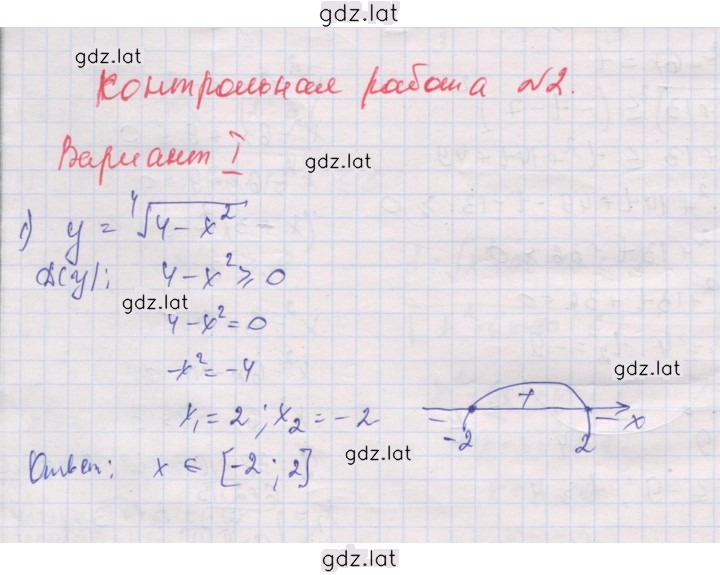 gdz.lat
gdz.lat
Контрольная работа №2.
Вариант I
gdz.lat
1) y = ⁴√4 - x²
D(y): 4 - x² ≥ 0
gdz.lat
4 - x² = 0
-x² = -4
gdz.lat
x₁ = 2 ; x₂ = -2
- + -
-2 2 x
gdz.lat
Ответ: x ∈ [-2 ; 2]
gdz.lat